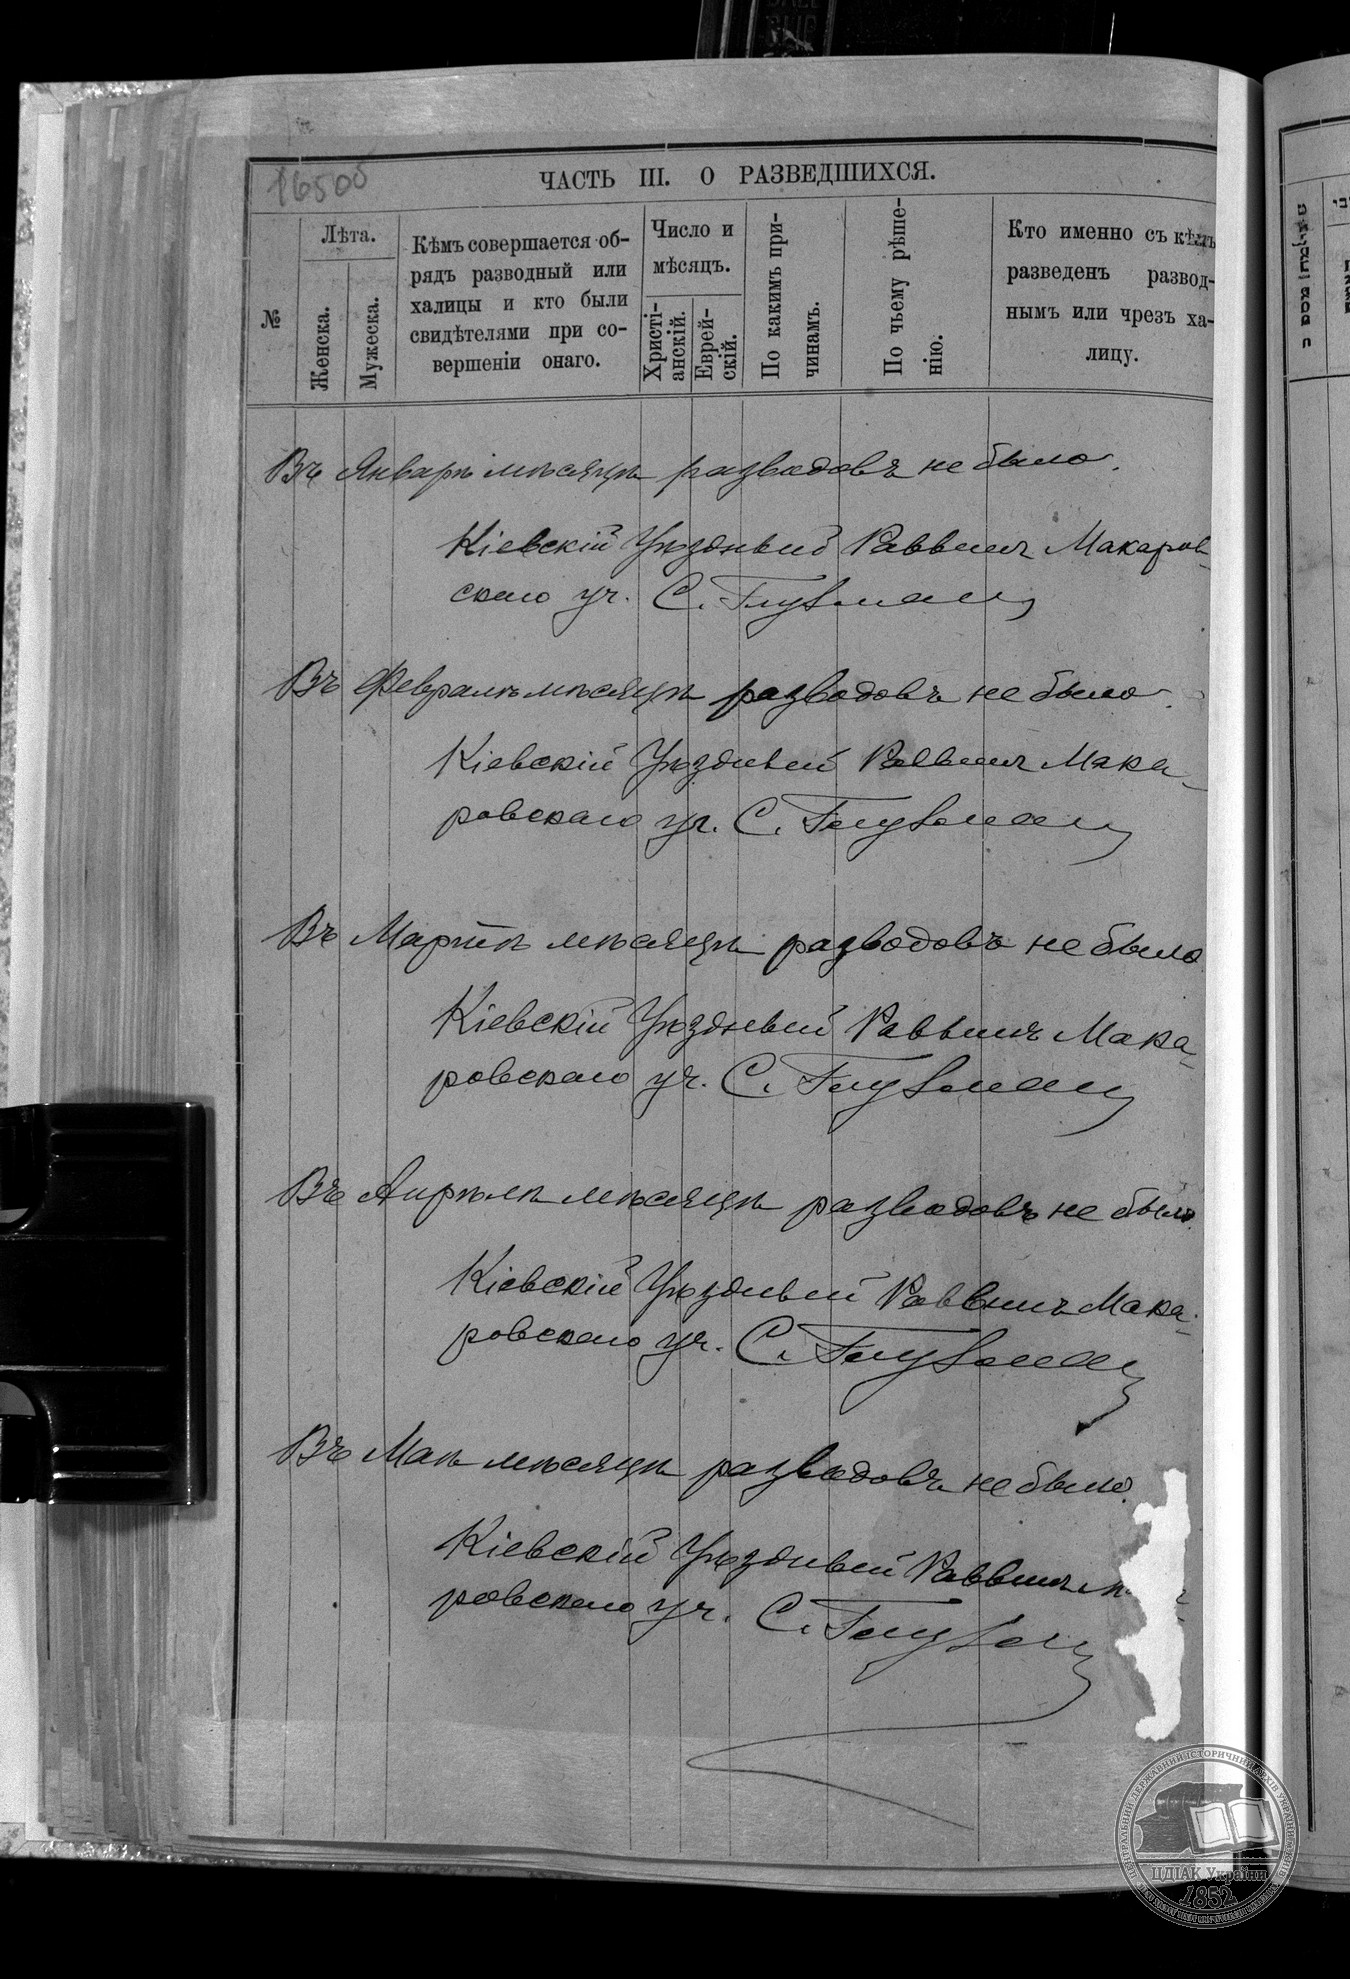 16500
ЧАСТЬ III. О РАЗВЕДШИХСЯ.
№
Лѣта.
Женска.
Мужеска.
Кѣмъ совершается об-
рядъ разводный или
халицы и кто были
свидѣтелями при со-
вершеніи онаго.
Число и
мѣсяцъ.
Христі-
анскій.
Еврей-
скій.
По какимъ при-
чинамъ.
По чьему рѣше-
нію.
Кто именно съ кѣмъ
разведенъ развод-
нымъ или чрезъ ха-
лицу.
Въ Январѣ мѣсяцѣ разводовъ не было.
Кіевскій Уѣздный Раввинъ Макаров-
скаго уч. С. Глузман
Въ Февралѣ мѣсяцѣ разводовъ не было.
Кіевскій Уѣздный Раввинъ Мака-
ровскаго уч. С. Глузман
Въ Мартѣ мѣсяцѣ разводовъ не было
Кіевскій Уѣздный Раввинъ Мака-
ровскаго уч. С. Глузман
Въ Апрѣлѣ мѣсяцѣ разводовъ не было.
Кіевскій Уѣздный Раввинъ Мака-
ровскаго уч. С. Глузман
Въ Маѣ мѣсяцѣ разводовъ не было.
Кіевскій Уѣздный Раввинъ
ровскаго уч. С. Глузман
ЦЕНТРАЛЬНИЙ ДЕРЖАВНИЙ ІСТОРИЧНИЙ АРХІВ УКРАЇНИ
ЦДІАК України
1852